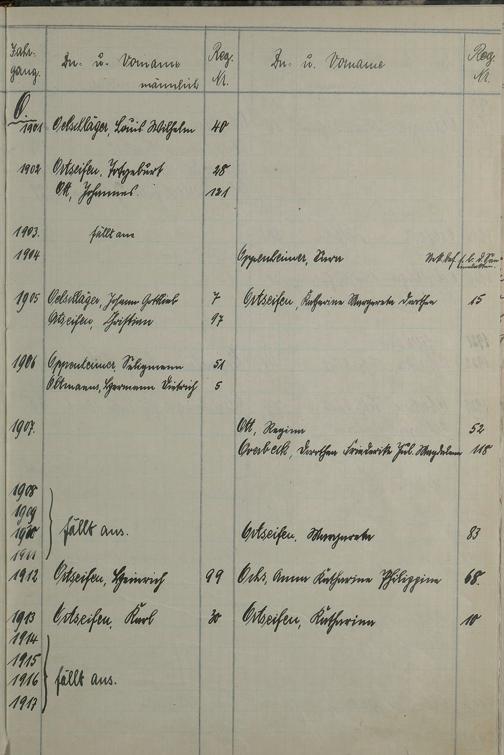 Jahr- Zn.- u. Vorname Reg. Zn.- u. Vorname Reg.
gang. männlich Nr. Nr.
O.
1901 Oelschläger, Louis Wilhelm 40
1902 Ortseifen, Totgeburt 28
Ott, Johannes 121
1903. fällt aus
1904 Oppenheimer,
1905 Oelschläger, Johann Gottlieb 7 Ortseifen, Katharine Margarete Dorthea 15
Ortseifen, Christian 97
1906 Oppenheimer, Seligmann 51
Oltmanns, Hermann Dietrich 5
1907. Ott, Regina 52
Overbeck, Dorothea Friederike Jul. Magdalena 118
1908
1909
1910 fällt aus. Ortseifen, Margareta 83
1911
1912 Ortseifen, Heinrich 99 Ochs, Anna Katharine Philippine 68.
1913 Ortseifen, Karl 30 Ortseifen, Katharina 10
1914
1915
1916 fällt aus.
1917